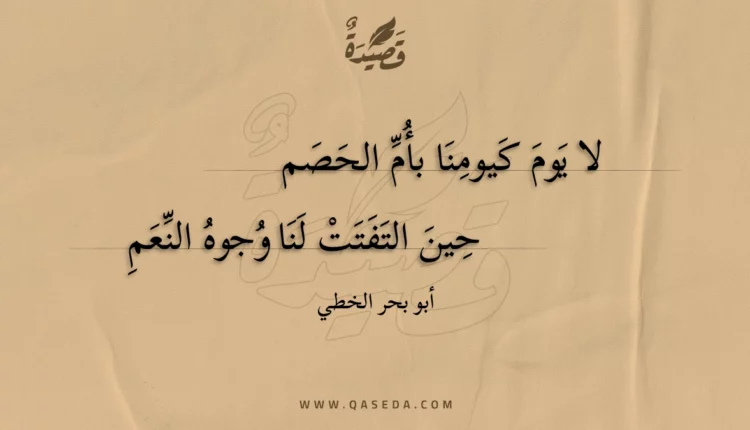 قَصِيْدَةٌ
لا يَومَ كَيومِنَا بأُمِّ الحَصَم
حِينَ التَفَتَتْ لَنَا وُجوهُ النِّعَمِ
أبو بحر الخطي
WWW.QASEDA.COM